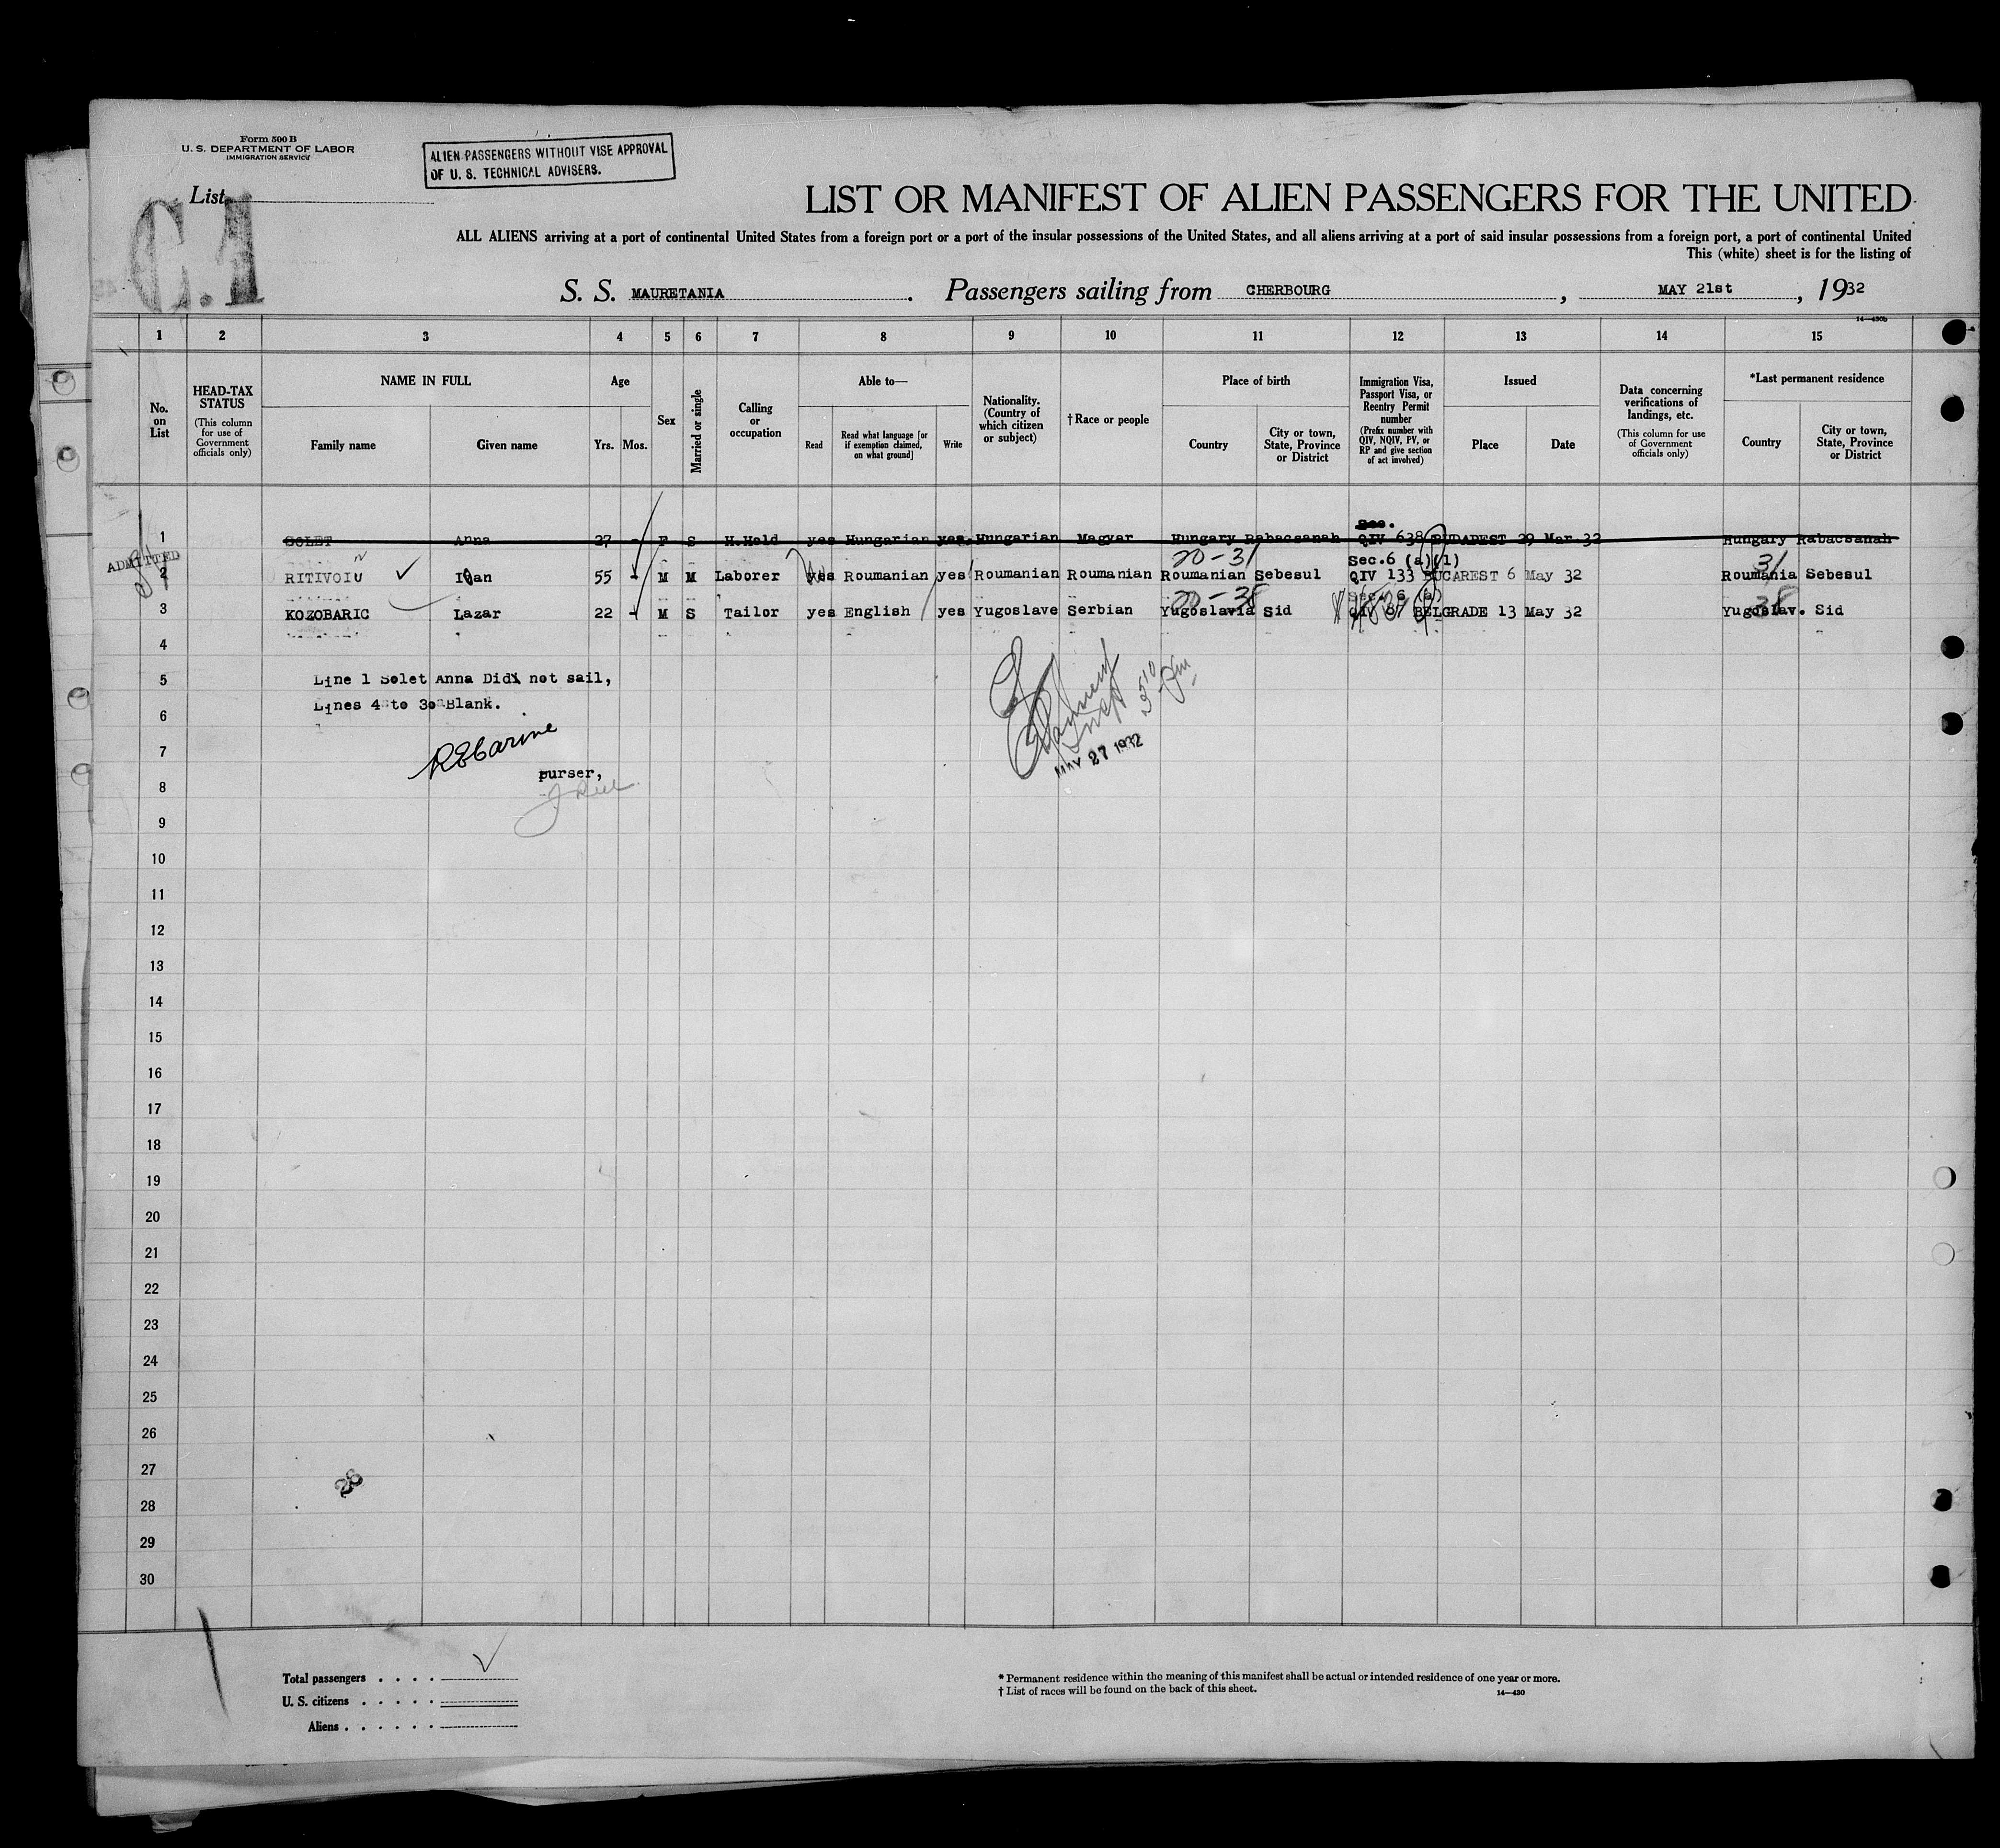 Form 500 B
U. S. DEPARTMENT OF LABOR
IMMIGRATION SERVICE
ALIEN PASSENGERS WITHOUT VISE APPROVAL
OF U. S. TECHNICAL ADVISERS.
List
C.1
LIST OR MANIFEST OF ALIEN PASSENGERS FOR THE UNITED
ALL ALIENS arriving at a port of continental United States from a foreign port or a port of the insular possessions of the United States, and all aliens arriving at a port of said insular possessions from a foreign port, a port of continental United
This (white) sheet is for the listing of
S. S. MAURETANIA . Passengers sailing from CHERBOURG , MAY 21st , 1932
14—430b
1 2 3 4 5 6 7 8 9 10 11 12 13 14 15
No. on List
HEAD-TAX STATUS
(This column for use of Government officials only)
NAME IN FULL
Family name
Given name
Age
Yrs. Mos.
Sex
Married or single
Calling or occupation
Able to—
Read
Read what language [or if exemption claimed, on what ground]
Write
Nationality. (Country of which citizen or subject)
†Race or people
Place of birth
Country
City or town, State, Province or District
Immigration Visa, Passport Visa, or Reentry Permit number
(Prefix number with QIV, NQIV, PV, or RP and give section of act involved)
Issued
Place
Date
Data concerning verifications of landings, etc.
(This column for use of Government officials only)
*Last permanent residence
Country
City or town, State, Province or District
Sec.
1 SOLET Anna 27 - F S H.Hold yes Hungarian yes Hungarian Magyar Hungary Rabacsanah QIV 638 BUDAPEST 29 Mar 32 Hungary Rabacsanah
ADMITTED
20-31 Sec.6 (a)(1) 31
2 RITIVOIU Ioan 55 - M M Laborer yes Roumanian yes Roumanian Roumanian Roumanian Sebesul QIV 133 BUCAREST 6 May 32 Roumania Sebesul
20-38 Sec. 6 (a) 38
3 KOZOBARIC Lazar 22 - M S Tailor yes English yes Yugoslave Serbian Yugoslavia Sid QIV 87 BELGRADE 13 May 32 Yugoslav. Sid
4
5 Line 1 Solet Anna Did not sail,
Lines 4 to 30 Blank.
6
7
purser,
MAY 27 1932
8
9
10
11
12
13
14
15
16
17
18
19
20
21
22
23
24
25
26
27
28
29
30
Total passengers . . . .
U. S. citizens . . . . .
Aliens . . . . . .
* Permanent residence within the meaning of this manifest shall be actual or intended residence of one year or more.
† List of races will be found on the back of this sheet.
14—430